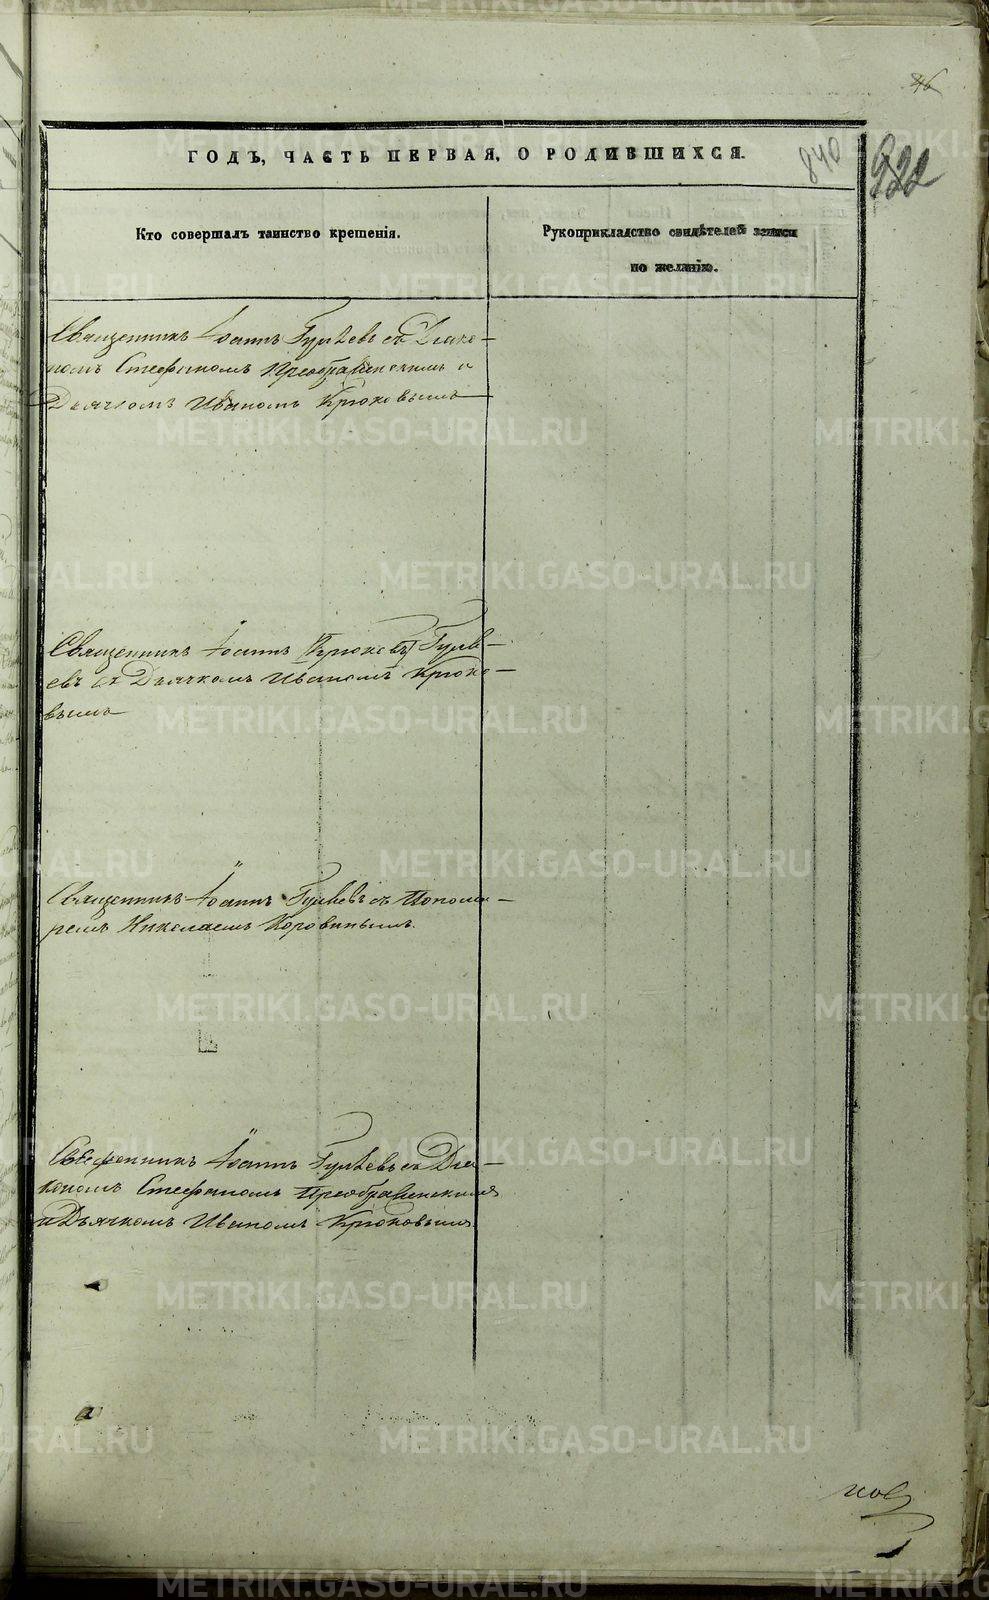 46
ГОДЪ, ЧАСТЬ ПЕРВАЯ, О РОДИВШИХСЯ.
840
922
Кто совершалъ таинство крещенія.
Рукоприкладство свидѣтелей записи
по желанію.
Священникъ Іоаннъ Гуляевъ съ Діако-
номъ Стефаномъ Преображенскимъ и
Дьячкомъ Иваномъ Крюковымъ
Священникъ Іоаннъ [Крюковъ] Гуля-
евъ съ Дьячкомъ Иваномъ Крюко-
вымъ
Священникъ Іоаннъ Гуляевъ съ Понома-
ремъ Николаемъ Коровинымъ.
Священникъ Іоаннъ Гуляевъ съ Діа-
кономъ Стефаномъ Преображенскимъ
и Дьячкомъ Иваномъ Крюковымъ.
METRIKI.GASO-URAL.RU